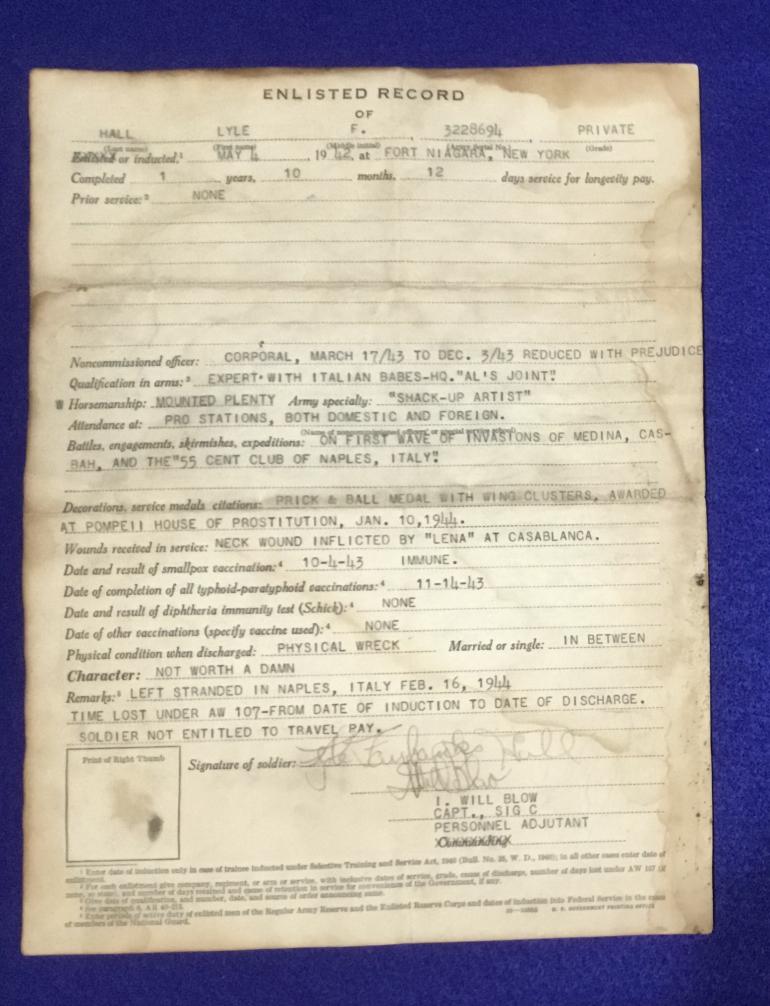 ENLISTED RECORD
OF
HALL LYLE F. 3228694 PRIVATE
(Last name) (First name) (Middle initial) (Army Serial No.) (Grade)
Enlisted or inducted,¹ MAY 4, 1942, at FORT NIAGARA, NEW YORK
Completed 1 years, 10 months, 12 days service for longevity pay.
Prior service:² NONE
Noncommissioned officer: CORPORAL, MARCH 17/43 TO DEC. 3/43 REDUCED WITH PREJUDICE
Qualification in arms:³ EXPERT WITH ITALIAN BABES-HQ."AL'S JOINT".
Horsemanship: MOUNTED PLENTY Army specialty: "SHACK-UP ARTIST"
Attendance at: PRO STATIONS, BOTH DOMESTIC AND FOREIGN.
(Name of noncommissioned officers' or special service school)
Battles, engagements, skirmishes, expeditions: ON FIRST WAVE OF INVASIONS OF MEDINA, CAS-
BAH, AND THE"55 CENT CLUB OF NAPLES, ITALY".
Decorations, service medals citations: PRICK & BALL MEDAL WITH WING CLUSTERS, AWARDED
AT POMPEII HOUSE OF PROSTITUTION, JAN. 10,1944.
Wounds received in service: NECK WOUND INFLICTED BY "LENA" AT CASABLANCA.
Date and result of smallpox vaccination:⁴ 10-4-43 IMMUNE.
Date of completion of all typhoid-paratyphoid vaccinations:⁴ 11-14-43
Date and result of diphtheria immunity test (Schick):⁴ NONE
Date of other vaccinations (specify vaccine used):⁴ NONE
Physical condition when discharged: PHYSICAL WRECK Married or single: IN BETWEEN
Character: NOT WORTH A DAMN
Remarks:⁵ LEFT STRANDED IN NAPLES, ITALY FEB. 16, 1944
TIME LOST UNDER AW 107-FROM DATE OF INDUCTION TO DATE OF DISCHARGE.
SOLDIER NOT ENTITLED TO TRAVEL PAY.
Print of Right Thumb
Signature of soldier: Hall
I. WILL BLOW
CAPT., SIG C
PERSONNEL ADJUTANT
Commanding
¹ Enter date of induction only in case of trainee inducted under Selective Training and Service Act, 1940 (Bull. No. 25, W. D., 1940); in all other cases enter date of
enlistment.
² For each enlistment give company, regiment, or arm or service, with inclusive dates of service, grade, cause of discharge, number of days lost under AW 107 (if
none, so state), and number of days retained and cause of retention in service for convenience of the Government, if any.
³ Give date of qualification, and number, date, and source of order announcing same.
⁴ See paragraph 6, AR 40-210.
⁵ Enter periods of active duty of enlisted men of the Regular Army Reserve and the Enlisted Reserve Corps and dates of induction into Federal Service in the cases
of members of the National Guard.
U. S. GOVERNMENT PRINTING OFFICE